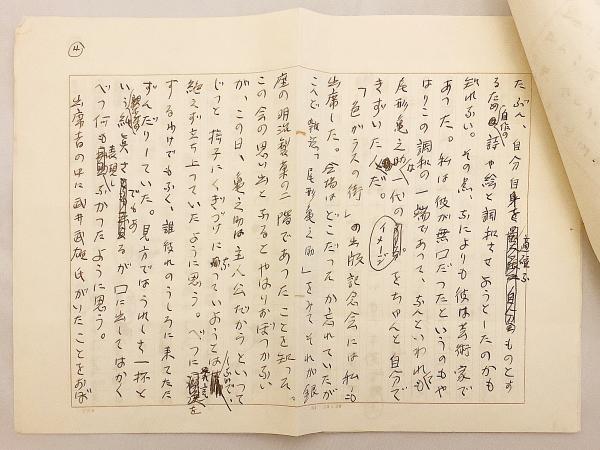 ④
たぶん、自分自身を適確なものとす
るため自作の詩や絵と調和させようとしたのかも
知れない。その点、なによりも彼は芸術家で
あった。私は彼が無口だったというのもや
はりこの調和の一端であって、なんといわれても
尾形亀之助は一代のイメーヂをちゃんと自分で
きずいた人だ。
「色ガラスの街」の出版記念会には私も
出席した。会場はどこだったか忘れていたが
こんど雑誌「尾形亀之助」をみてそれが銀
座の明治製菓の二階であったことを知った。
この会の思い出となるとやはりおぼつかない
が、この日、亀之助は主人公だからといって
じっと椅子にくぎづけになっていようとはしないで、
絶えず立ち上っていたように思う。べつに発言を
するわけでもなく、誰彼れのうしろに来てたた
ずんだりしていた。見方ではうれしさ一杯と
いう純真さでもあるが口に出してはかく
べつ何も表現しなかったように思う。
出席者の中に武井武雄氏がいたことをおぼ